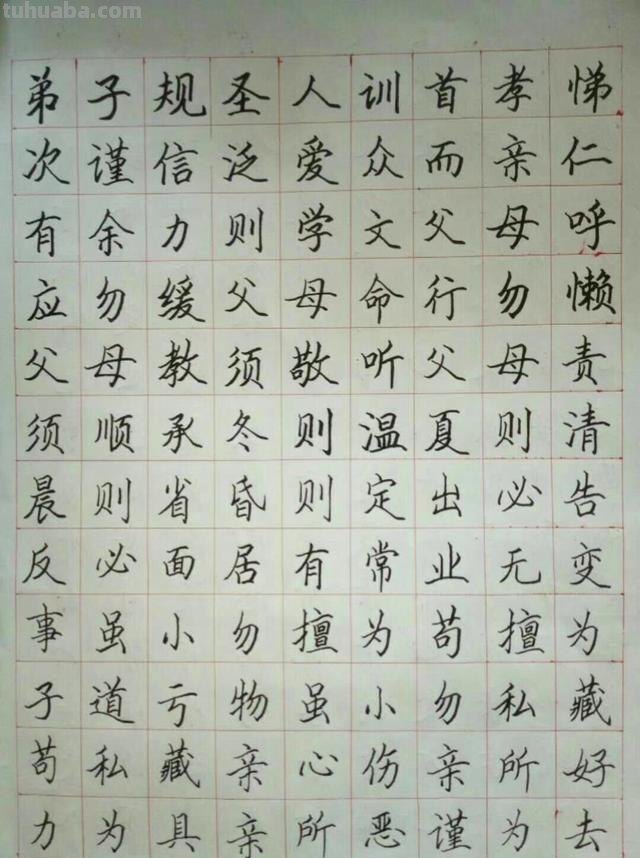 tuhuaba.com
弟子规圣人训首孝悌
次谨信泛爱众而亲仁
有余力则学文父母呼
应勿缓父母命行勿懒
父母教须敬听父母责
须顺承冬则温夏则清
晨则省昏则定出必告
反必面居有常业无变
事虽小勿擅为苟擅为
子道亏物虽小勿私藏
苟私藏亲心伤亲所好
力为具亲所恶谨为去